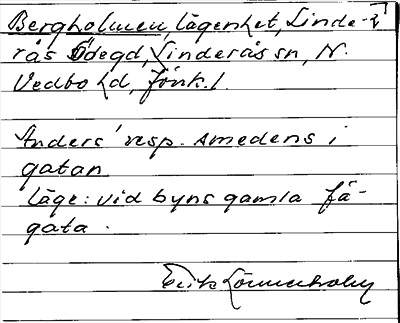 Bergholmen, lägenhet, Linde-
rås Ödegd, Linderås sn, N.
Vedbo hd, Jönk. l.
Anders' resp. Smedens i
gatan
Läge: vid byns gamla fä-
gata.
Erik